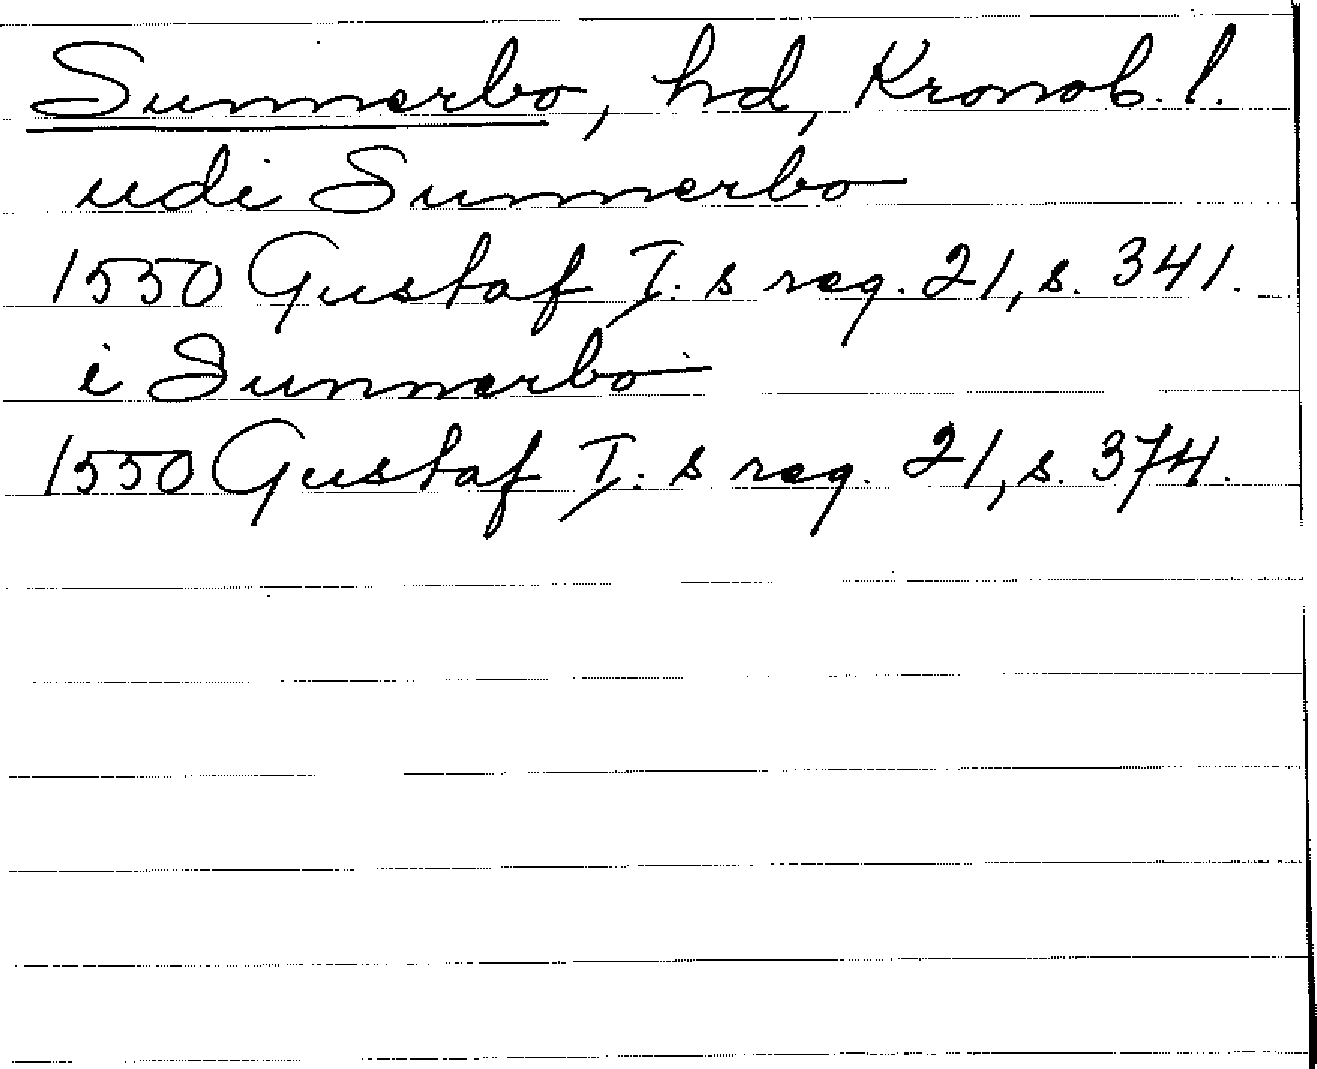 Sunnerbo, hd, Kronob. l.
udi Sunnerbo
1550 Gustaf I: s reg. 21, s. 341.
i Sunnerbo
1550 Gustaf I: s reg. 21, s. 374.